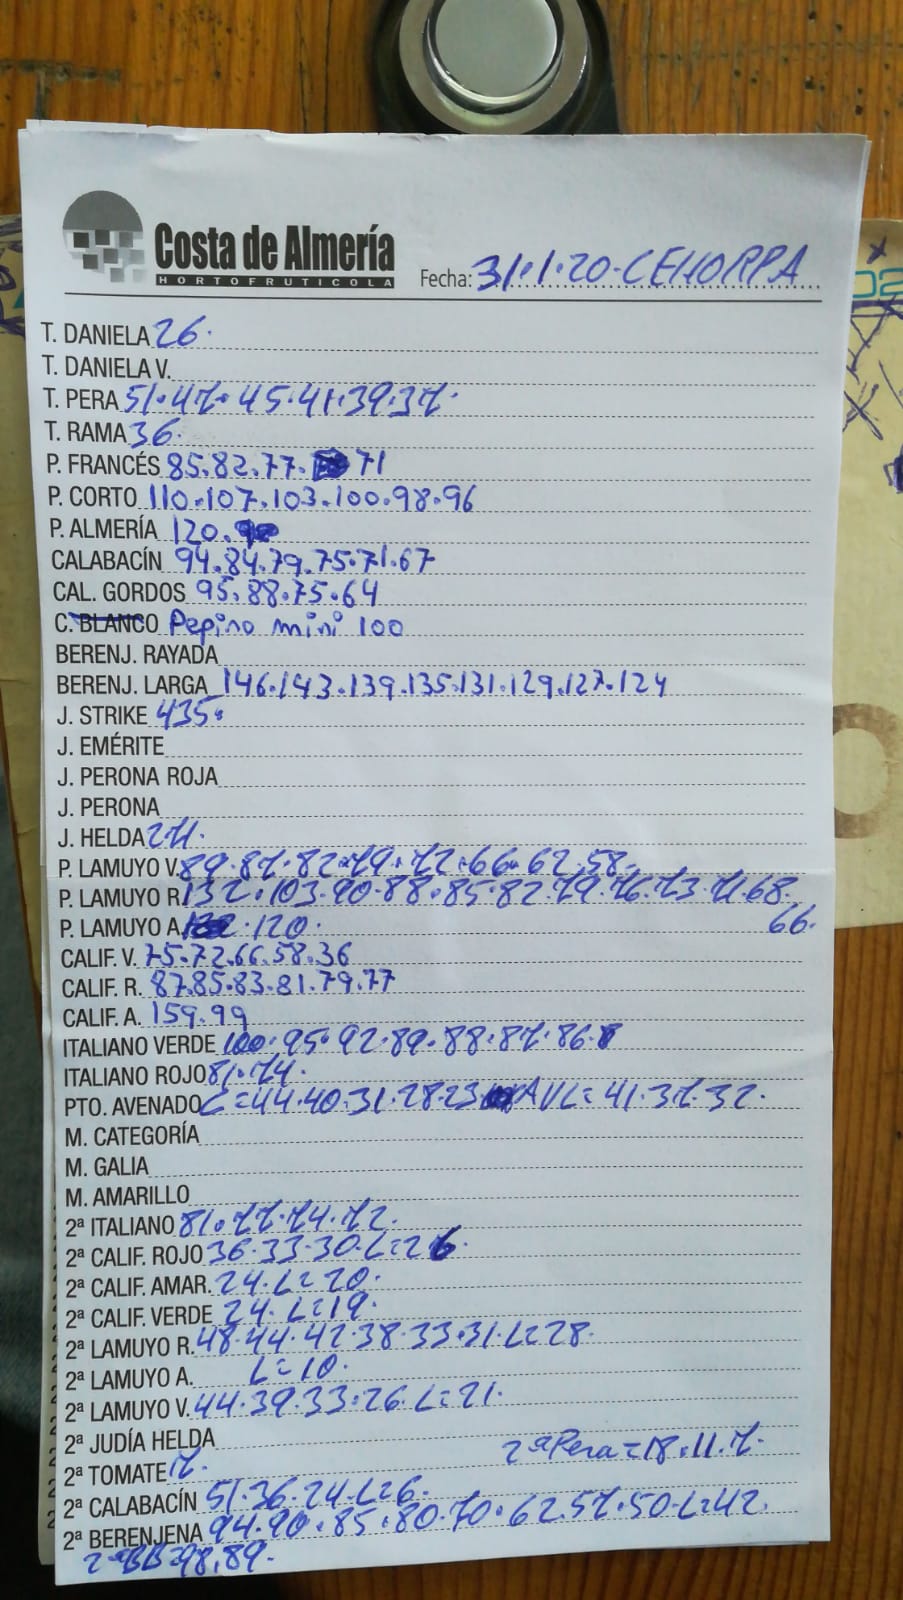 Costa de Almería
HORTOFRUTICOLA
Fecha: 31.1.20.CEHORPA
T. DANIELA 26.
T. DANIELA V.
T. PERA 51.47.45.41.39.37.
T. RAMA 36.
P. FRANCÉS 85.82.77. 71
P. CORTO 110.107.103.100.98.96
P. ALMERÍA 120.
CALABACÍN 94.84.79.75.71.67
CAL. GORDOS 95.88.75.64
C. BLANCO Pepino mini 100
BERENJ. RAYADA
BERENJ. LARGA 146.143.139.135.131.129.127.124
J. STRIKE 435.
J. EMÉRITE
J. PERONA ROJA
J. PERONA
J. HELDA 271.
P. LAMUYO V. 89.87.82.79.72.66.62.58.
P. LAMUYO R. 132.103.90.88.85.82.79.76.73.71.68.
66.
P. LAMUYO A. .120.
CALIF. V. 75.72.66.58.36
CALIF. R. 87.85.83.81.79.77
CALIF. A. 159.99
ITALIANO VERDE 100.95.92.89.88.87.86.
ITALIANO ROJO 81.74.
PTO. AVENADO L=44.40.31.28.23 AVL=41.37.32.
M. CATEGORÍA
M. GALIA
M. AMARILLO
2ª ITALIANO 81.77.74.72.
2ª CALIF. ROJO 36.33.30.L=26.
2ª CALIF. AMAR. 24.L=20.
2ª CALIF. VERDE 24.L=19.
2ª LAMUYO R. 48.44.42.38.33.31.L=28.
2ª LAMUYO A. L=10.
2ª LAMUYO V. 44.39.33.26.L=21.
2ª JUDÍA HELDA
2ª Pera=18.11.7.
2ª TOMATE 7.
2ª CALABACÍN 51.36.24.L=6.
2ª BERENJENA 94.90.85.80.70.62.57.50.L=42.
2ªBB=98.89.